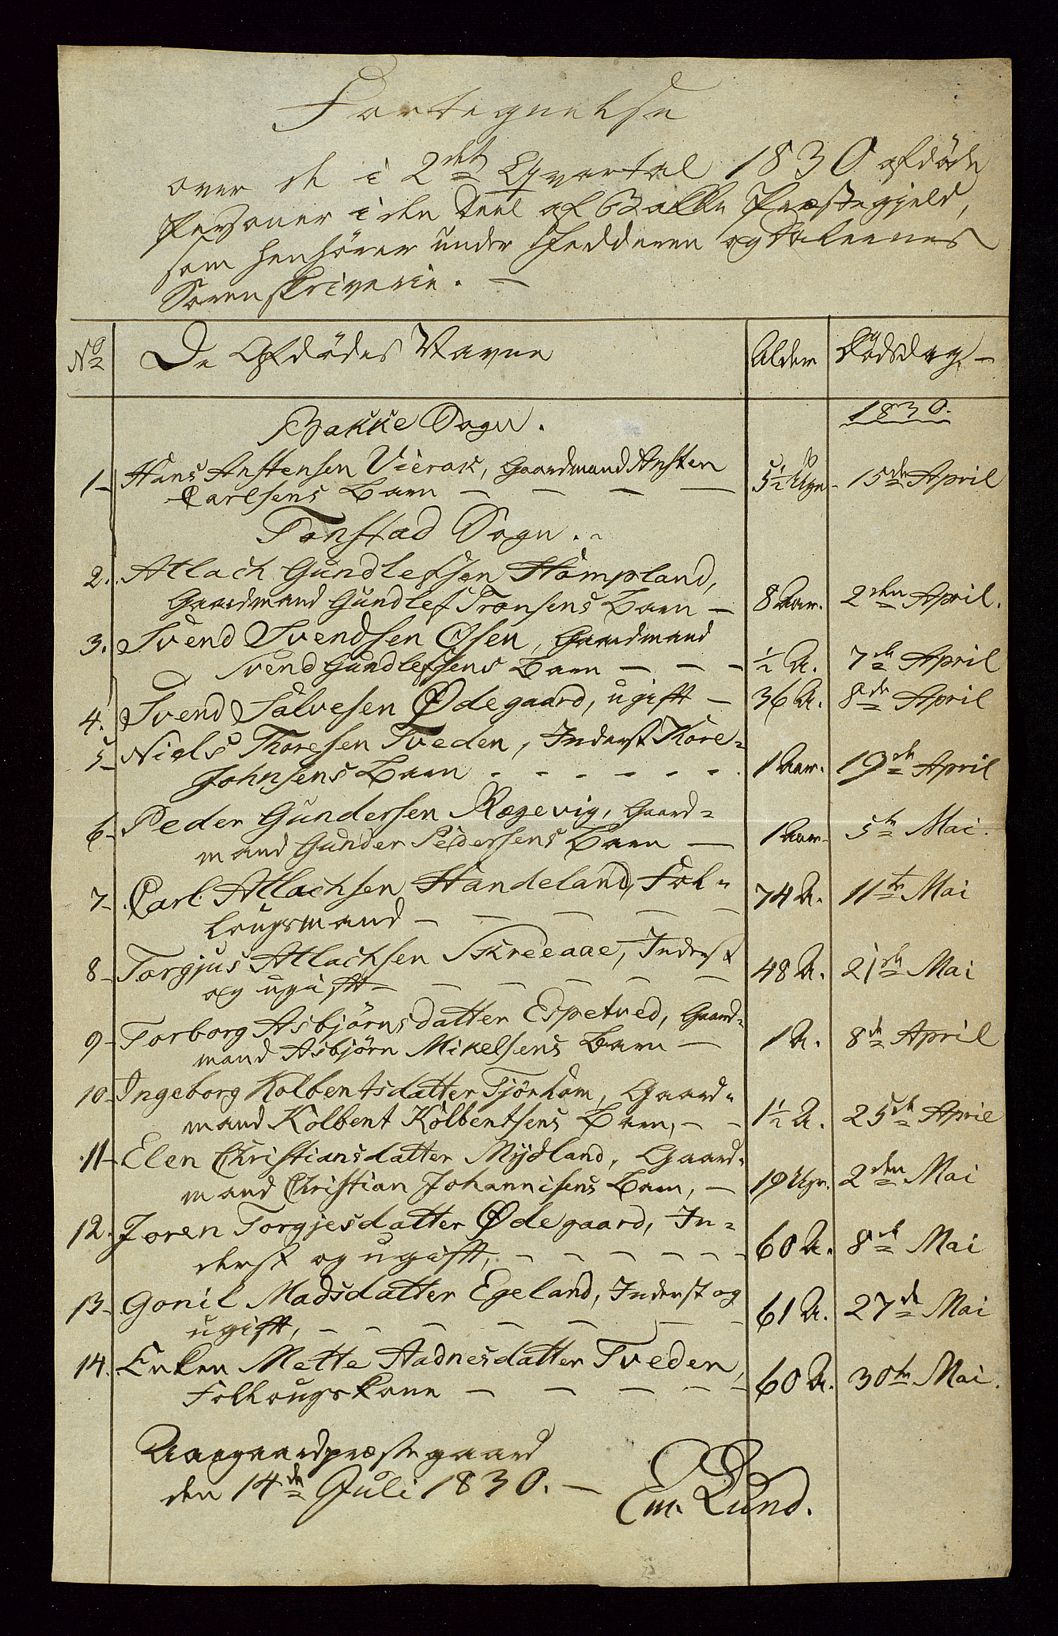 Fortegnelse
over de i 2det Qvartal 1830 afdöde
Personer i den Deel af Bakke Præstegjeld,
som henhörer under Fedderen og Dalernes
Sorenskriverie. —
No De Afdödes Navne Alder Dödsdag —
Bakke Sogn. 1830.
1 Hans Anstensen Vierak, Gaardmand Ansten
Carlsens Barn — — — 5½ Uge 15de April
Tonstad Sogn.
2. Atlach Gundlefsen Hompland,
Gaardmand Gundlef Tronsens Barn — 8 Aar. 2den April.
3. Svend Svendsen Osen, Gaardmand
Svend Gundlefsens Barn — — — ½ A. 7de April
4. Svend Salvesen Ødegaard, ugift — 36 A. 8de April
5 Niels Thoresen Tveden, Inderst Thore-
Johnsens Barn - - - - - - 1 Aar. 19de April
6 Peder Gundersen Røgevig, Gaard-
mand Gunder Pedersens Barn — 1 Aar. 5te Mai.
7 Carl Atlachsen Handeland, Fol-
lougsmand — — — — — 74 A. 11te Mai
8 Torgjus Atlachsen Skreeaae, Inderst
og ugift — — — — — 48 A. 21de Mai
9 Torborg Asbjörnsdatter Espetved, Gaard-
mand Asbjörn Mikelsens Barn — 1 A. 8de April
10 Ingeborg Kolbentsdatter Tjörhom, Gaard-
mand Kolbent Kolbentsens Barn, — — 1½ A. 25de April
11 Elen Christiansdatter Mydland, Gaard-
mand Christian Johannisens Barn, — 19 Uger. 2den Mai
12. Joren Torgjesdatter Ødegaard, In-
derst og ugift, — — — — — 60 A. 8de Mai
13 Gonil Madsdatter Egeland, Inderst og
ugift, — — — — — — 61 A. 27de Mai
14. Enken Mette Aadnesdatter Tveden,
Follougskone — — — — — 60 A. 30te Mai.
Aaegaardpræstegaard
den 14de Juli 1830. — Em. Lund.